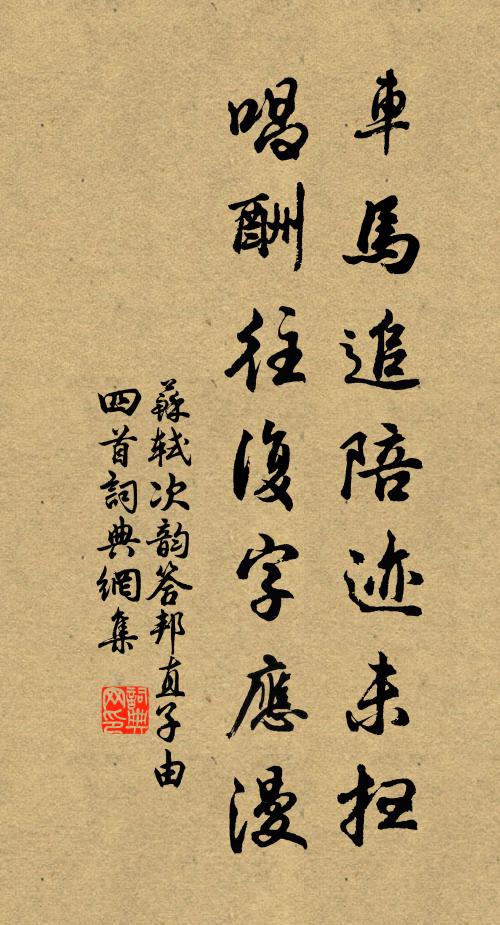 車馬追陪迹未扫
唱酬往復字應漫
蘇軾次韵答邦直子由
四首詞典網集
詞典
网印